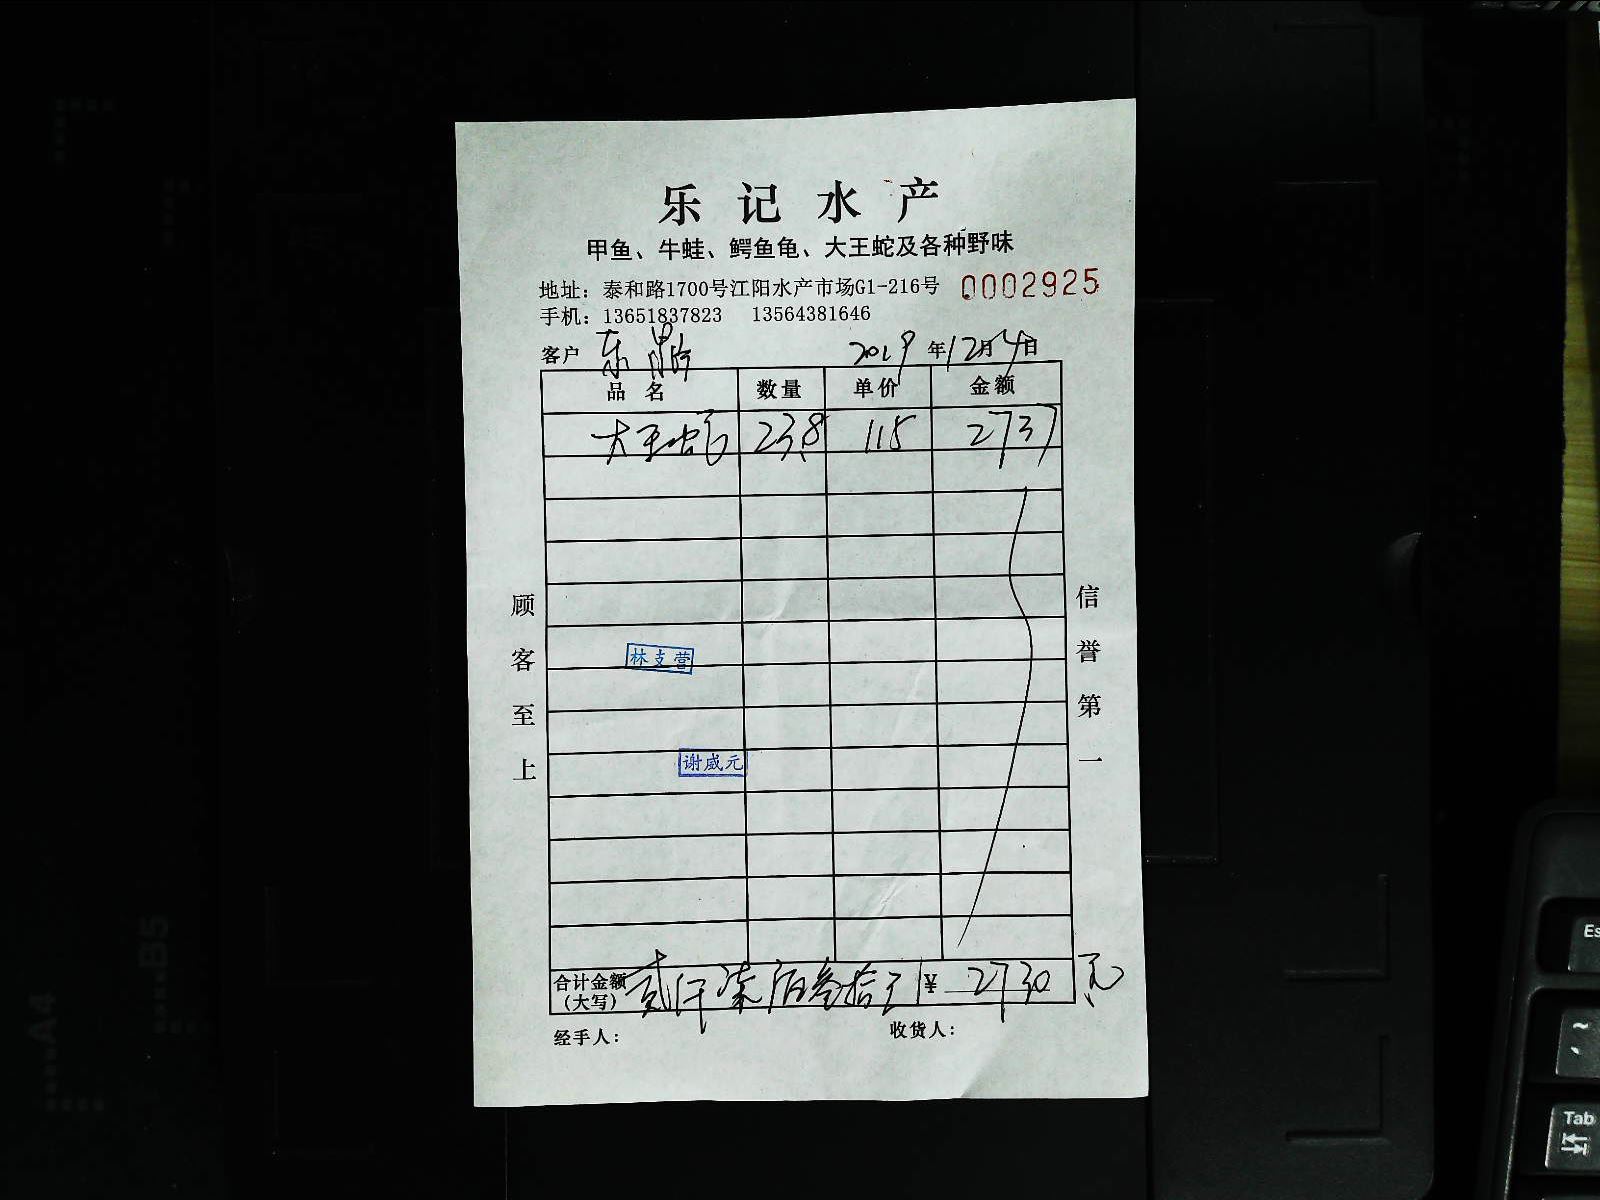 乐记水产
甲鱼、牛蛙、鳄鱼龟、大王蛇及各种野味
地址：泰和路1700号江阳水产市场G1-216号 0002925
手机：13651837823 13564381646
客户 东 2019年12月4日
品名 数量 单价 金额
大王蛇 23.8 115 2737
顾客至上
信誉第一
林支营
谢威元
合计金额 贰仟柒佰叁拾元 ¥2730元
(大写)
经手人： 收货人：
B5
A4
Es
~
Tab